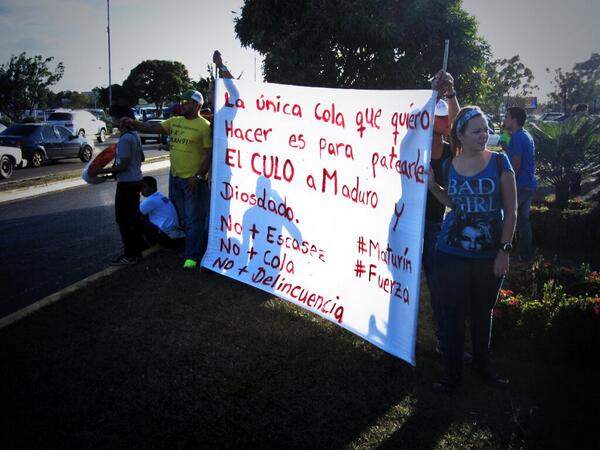 La única Cola que quiero
Hacer es para patearle
El CULO a Maduro y
Diosdado.
No + Escasez
No + Cola
No + Delincuencia
#Maturín
#Fuerza
BAD
GIRL